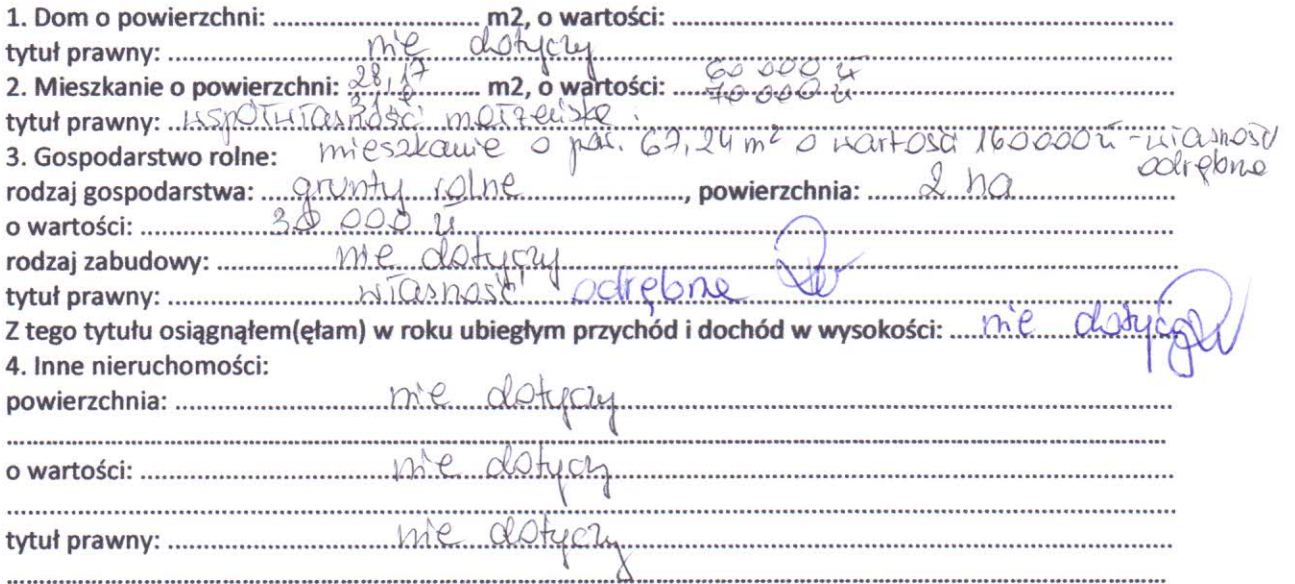 1. Dom o powierzchni: .................................. m2, o wartości: ..................................
tytuł prawny: .................. nie dotyczy ..................
2. Mieszkanie o powierzchni: 28,17 m2, o wartości: 60 000 zł
70 000 zł
tytuł prawny: współwłasność małżeńska.
mieszkanie o pow. 67,24 m² o wartości 160000 zł - własność
3. Gospodarstwo rolne: odrębna
rodzaj gospodarstwa: grunty rolne, powierzchnia: 2 ha
o wartości: 30 000 zł
rodzaj zabudowy: nie dotyczy
tytuł prawny: własność odrębna
Z tego tytułu osiągnąłem(ęłam) w roku ubiegłym przychód i dochód w wysokości: nie dotyczy
4. Inne nieruchomości:
powierzchnia: nie dotyczy
o wartości: nie dotyczy
tytuł prawny: nie dotyczy